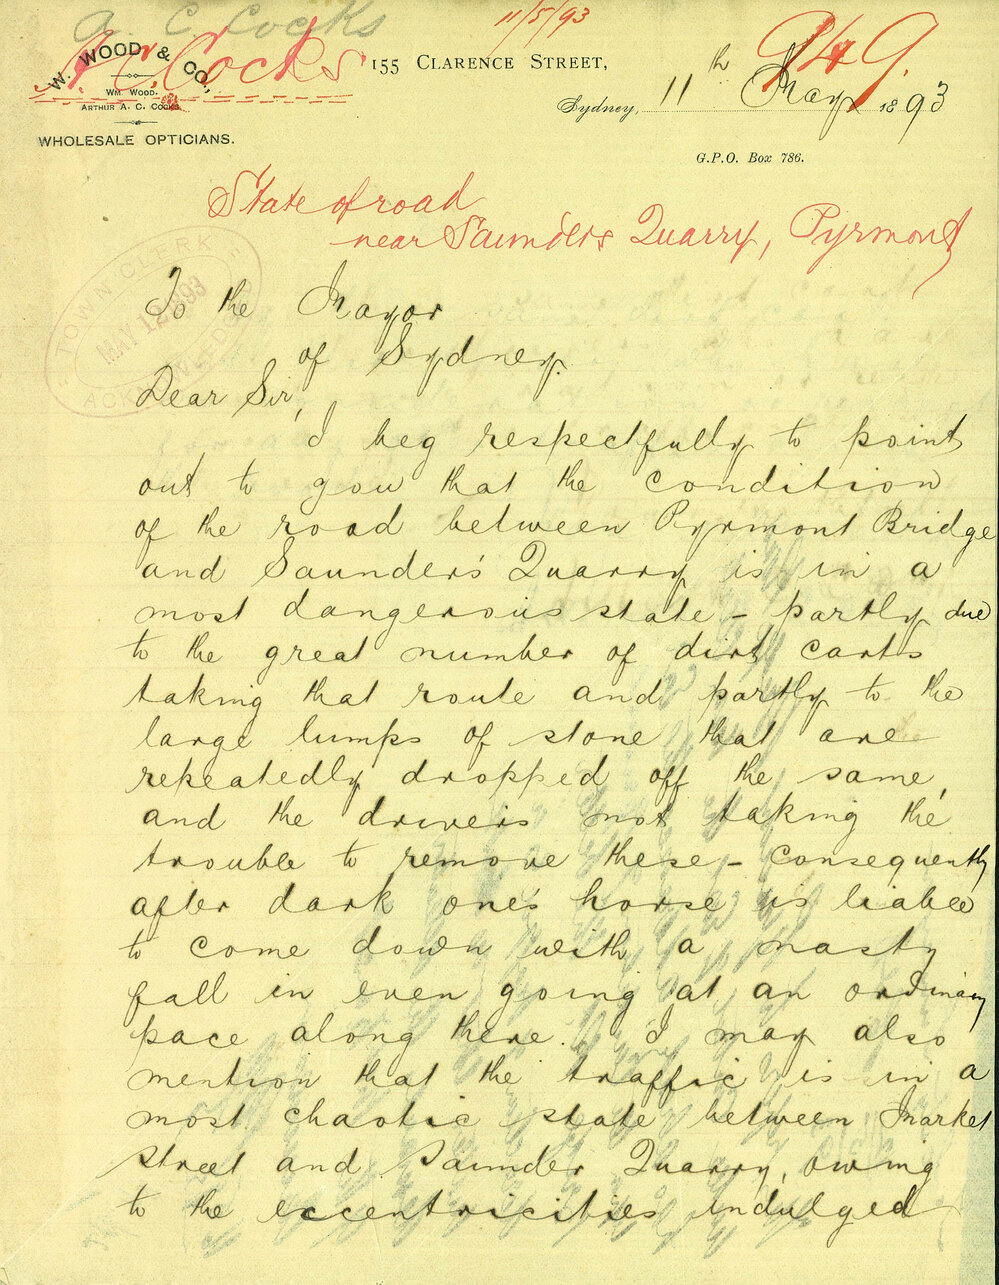 A. C. Cocks
11/5/93
949.
A. C. Cocks
W. WOOD & CO.,
WM. WOOD.
ARTHUR A. C. COCKS.
WHOLESALE OPTICIANS.
155 CLARENCE STREET,
Sydney, 11th May 1893
G.P.O. Box 786.
State of road
near Saunders Quarry, Pyrmont
TOWN CLERK
MAY 12 1893
ACKNOWLEDGED
To the Mayor
of Sydney.
Dear Sir,
I beg respectfully to point
out to you that the condition
of the road between Pyrmont Bridge
and Saunder's Quarry is in a
most dangerous state – partly due
to the great number of dirt carts
taking that route and partly to the
large lumps of stone that are
repeatedly dropped off the same,
and the drivers not taking the
trouble to remove these – consequently
after dark one's horse is liable
to come down with a nasty
fall in even going at an ordinary
pace along there. I may also
mention that the traffic is in a
most chaotic state between Market
Street and Saunder Quarry, owing
to the eccentricities indulged